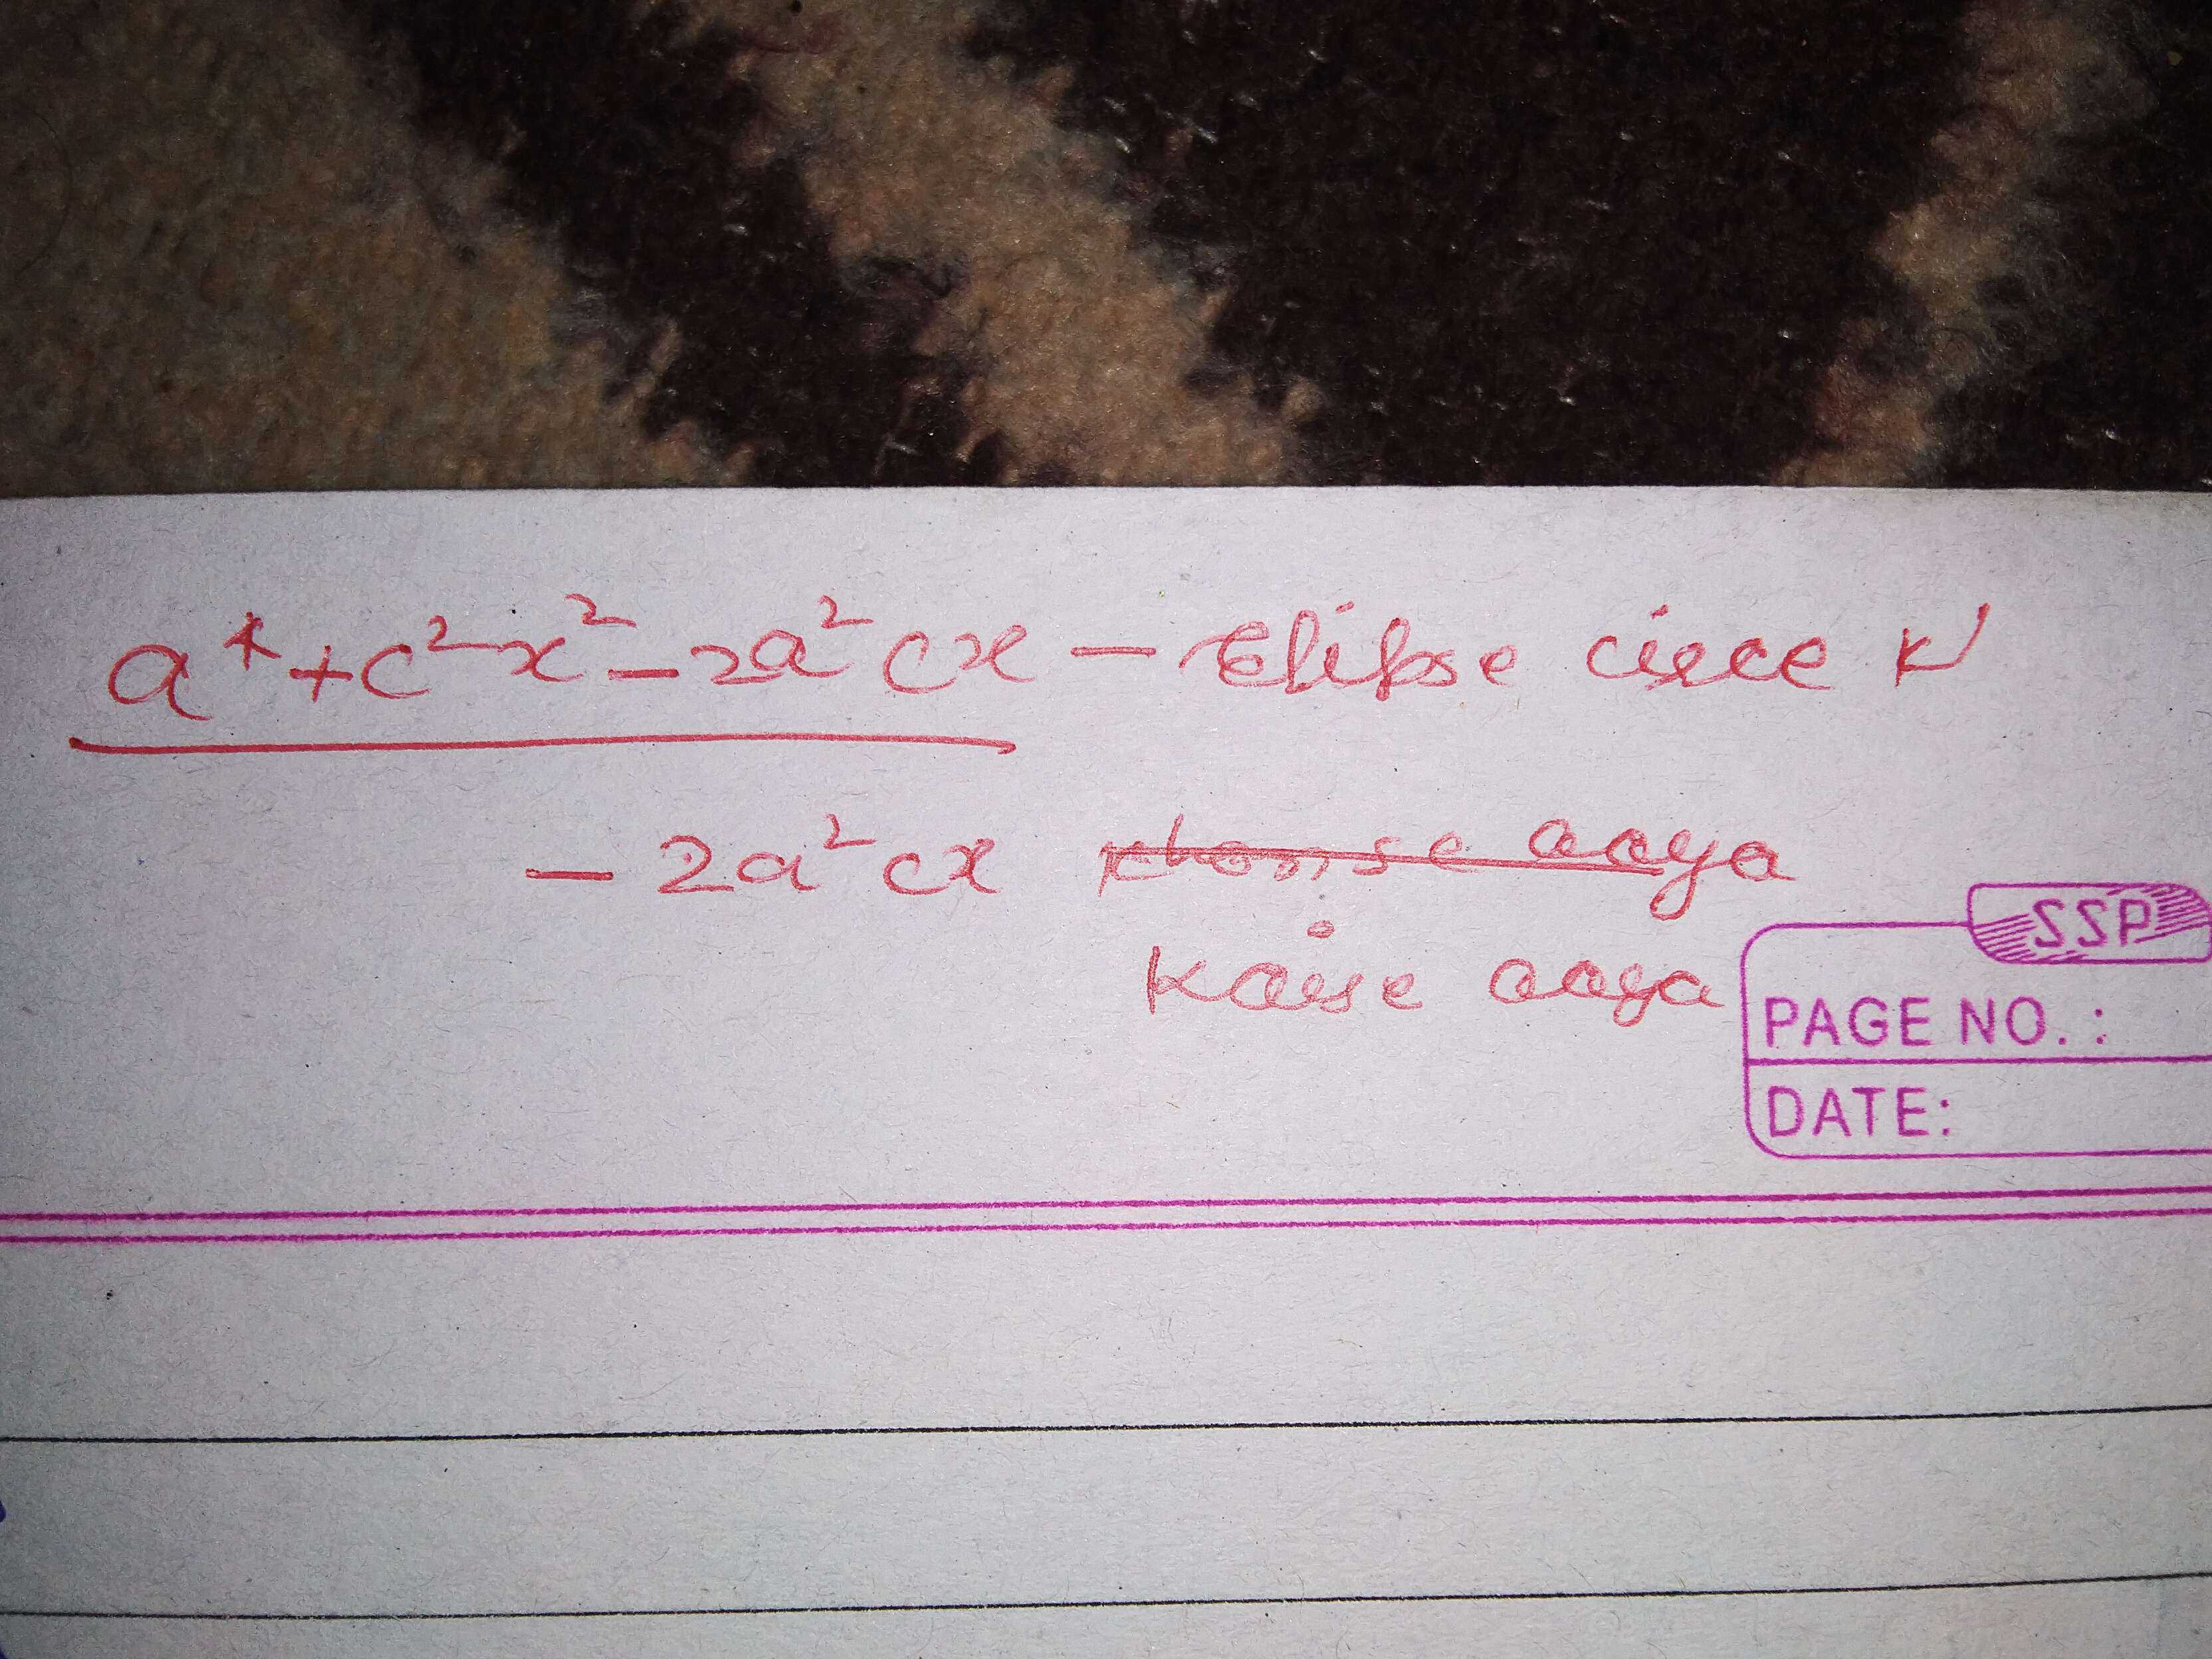 a⁴ + c² x² - 2a² cx - Elipse ciece ki
- 2a² cx khonse aaya
kaise aaya
SSP
PAGE NO. :
DATE: